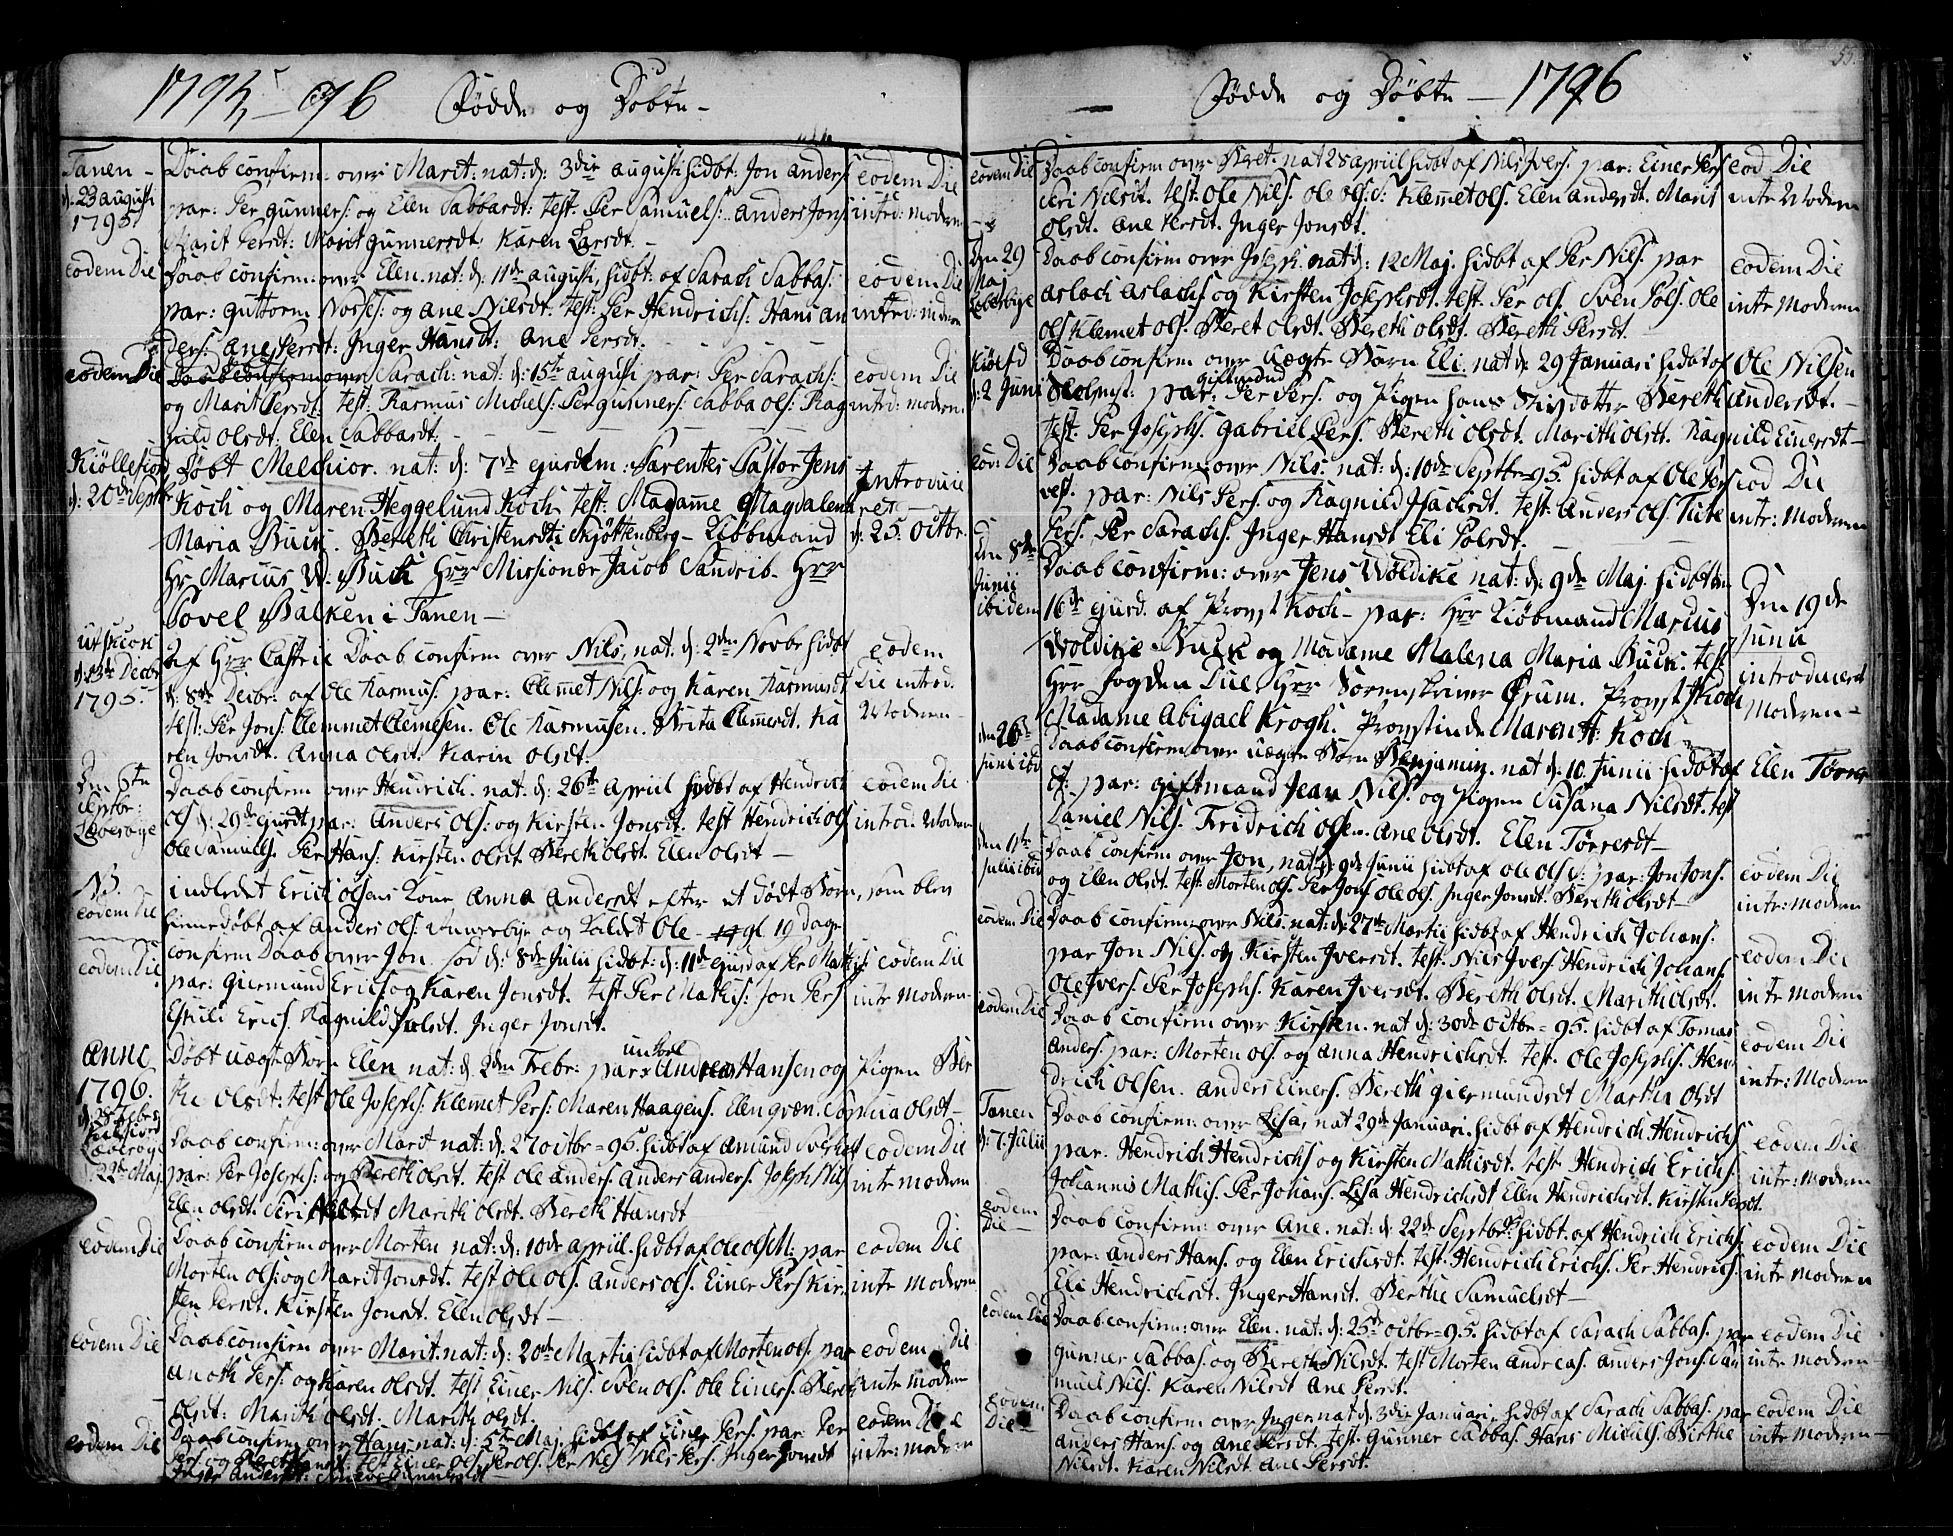 1795 - 96 Fødde og Døbte -
Tanen -
d: 23 augusti
1795.
Daab confirm: over Marit: nat: d: 3die augusti hidbt: Jon anders:
par: Per gunners: og Elen Sabbasdt: test: Per Samuels: anders Jons
Marit Persdt: Marit gunnersdt: Karen Larsdt. -
eodem Die
intrd: modren
eodem Die
Daab confirm: over Elen. nat: d: 11de augusti, hidbt: af Sarach Sabbas:
par: guttorm og ane Nilsdt. test: Per Hendrichs: Hans an
ders: ane Persdt: Inger Hansdt: ane Persdt.
eodem Die
intrd: modren
eodem Die
Daab confirm over Sarach: nat: d: 15te augusti par: Per Sarachs:
og Marit Persdt: test: Rasmus Michels: Per gunners: Sabba ols: Rag
nild olsdt: Elen Sabbasdt. -
eodem Die
intrd: modren
Kiøllefiord
d: 20de Septbr
Døbt Melchior. nat: d: 7de ejusdem: Parentes Pastor Jens
Koch og Maren Heggelund Koch. test: Madame Magdalena
Maria Buck. Bereth Christensdt: Skjøttenberg - Kiøbmand
Hr Marcus W: Buck Hrr Missionær Jacob Sandrib. Hrr
Povel Balken i Tanen -
Introduce
ret -
d: 25. octbr.
d: 13de Decbr
1795.
af Hrr Castrie Daab confirm over Nils, nat: d: 2den Novbr hidbt
d: 8de Decbr: af ole Rasmus: par: Clemet Nils: og Karen Rasmusdt
test: Per Jons: Clemmet Clemesen. Ole Rasmusen. Brita Clemetsdt. Ka
ren Jonsdt. Anna olsdt. Karin olsdt.
eodem
Die introd.
Modren -
Den 6te
Septbr:
Laxebye
Daab confirm over Hendrich. nat: d: 26te April hidbt af Hendrich
ols d: 29de ejusdt par: Anders ols: og Kirsten Jonsdt. test Hendrich ols
ole Samuels. Per Hans: Kirsten olsdt. Bereth olsdt. Elen olsdt -
eodem Die
introd: Modren
NB.
eodem Die
indledet Erich olsens Kone Anna Andersdt efter et død Barn, som blev
hiemmedøbt af Anders ols: og kaldet Ole - gl. 19 Dage
eodem Die
confirm Daab over Jon. fød d: 8de Julii hidbt: d: 11de ejusd af Per Mathis:
par: Giermund Erics og Karen Jonsdt. test Per Mathis: Jon Pers
Eskild Erics. Ragnild Polsdt. Inger Jonsdt.
eodem Die
intr Modren -
Anno
1796.
d: 28 Febr:
Døbt uægte Barn Elen nat: d: 2den Febr: par: Andreas Hansen og Pigen Be
the olsdt: test Ole Josephs: Klemet Pers: Maren Haagens: Elen qvæn. Sophia olsdt -
Laxebye
d: 22de Maj
Daab confirm: over Marit nat: d: 27 octbr = 95. hidbt af Amund
par: Per Josephs: og Bereth olsdt. test ole anders. anders anders. Joseph Nils
Elen olsdt. Siri olsdt Marith olsdt. Bereth Hansdt
eodem Die
intr modren
eodem Die
Daab confirm over Morten nat: d: 10de april. hidbt af ole ols M: par
Morten ols: og Marit Jonsdt. test ole ols. anders ols. Einer Pers Kir
sten Persdt. Kirsten Jonsdt. Elen olsdt -
eodem Die
intr modren
eodem Die
Daab confirm over Marit. nat: d: 20de Martii hidbt af Morten ols. par
Pers: og Karen olsdt. test Einer Nils. Sven ols. Ole Einers. Bereth
olsdt: Marith olsdt. Marith olsdt.
eodem Die
intr modren
eodem Die
Daab confirm over Hans nat: d: 5te Maj hidbt af Einer Pers: par Per
Pers og Hansdt: test Einer ols: Per ols. Per Nils Nils Pers: Inger Jonsdt
Inger Andersdt:
eodem Die
intr: modren
55.
Fødde og Døbte - 1796
eodem Die
Daab confirm over Beret. nat 25 april hidbt af Nils Ivers. par: Einer Pers
Siri Nilsdt. test: Ole Nils. Ole ols. D: Klemet ols. Elen Andersdt. Marit
olsdt. Ane Persdt. Inger Jonsdt.
eod Die
intr Modren
Den 29
Maj
Laxebye
Daab confirm over Joseph. nat d: 12 Maj. hidbt af Per Nils. par
Aslach Aslachs og Kirsten Josephsdt. test. Per ols. Sven Pols. Ole
ols Klemet ols. Beret olsdt. Bereth olsdt. Bereth Persdt.
eodem Die
intr Modren
Kiølefd
d: 2 Juni
Daab confirm over uægte Barn Eli. nat d: 29 Januari hidbt af Ole Nilsen
Holmst. par: giftmand Per Pers. og Pigen hans Stifdotter Bereth Andersdt. -
test. Per Josephs. Gabriel Pers. Bereth olsdt. Marith olsdt. Ragnild Einersdt -
eod: Die
Daab confirm: over Nils. nat: d: 10de Septbr = 95. hidbt af Ole Pers
vest. par: Nils Pers. og Ragnild Isachsdt. test. Anders ols.
Pers. Per Sarachs. Inger Hansdt Eli Polsdt.
eod Die
intr: Modren
Den 5te
Junii
ibidem
Daab confirm: over Jens Woldike nat: d: 9de Maj. hidbt den
16de ejusd. af Provst Koch - par: Hrr Kiøbmand Marcus
Woldike Buck og Madame Malena Maria Buck. test
Hrr Fogden Lue, Hrr Sorenskriver Ørum. Provst Koch
Madame Abigael Krogh. Provstinde Maren H: Koch
Den 19de
Junii
introduceret
Modren -
Den 26de
Juni ibid
Daab confirm over uægte Barn Benjamin. nat d: 10. Junii hidbt af Elen Tørres
dt. par: giftmand Jean Nils. og Pigen Susana Nilsdt. test
Daniel Nils. Fridrich olsen. Ane olsdt. Elen Tørresdt -
Den 11te
Julii ibid
Daab confirm over Jon, nat d: 9de Junii hidbt af ole ols D: par: Jon Jons.
og Elen olsdt. test. Morten ols. Per Jons ole ols. Inger Jonsdt. Bereth olsdt -
eodem Die
intr: modren
eodem Die
Daab confirm: over Nils. nat: d: 27de Martii hidbt af Hendrich Johans.
par Jon Nils. og Kirsten Iversdt. test. Nils Ivers. Hendrich Johans
Ole Ivers. Per Josephs. Karen Iversdt. Bereth olsdt. Marith olsdt.
eodem Die
intr modren
eodem Die
Daab confirm over Kirsten. nat d: 30de octbr = 95. hidbt af Tomas
Anders. par: Morten ols. og Anna Hendrichsdt. test. Ole Josephs. Hen
drich Olsen. Anders Einers. Bereth Giermundsdt Martha olsdt
eodem Die
intr: Modren
Tanen
d: 7. Julii
Daab confirm: over Lisa, nat 29de Januari. hidbt af Hendrich Hendrichs
par: Hendrich Hendrichs og Kirsten Mathisdt. test Hendrich Erichs.
Johannis Mathis. Per Johans. Lisa Hendrichsdt Elen Hendrichsdt. Kirsten Persdt.
eodem Die
intr: Modren
eodem
Die -
Daab confirm: over Ane. nat: d: 22de Septbr hidbt af Hendrich Erichs.
par: Anders Hans. og Elen Erichsdt. test: Hendrich Erichs. Per Hendrichs:
Eli Hendrichsdt. Inger Hansdt. Berthe Samuelsdt -
eodem Die
intr modren
eodem Die
Daab confirm: over Elen. nat: d: 25de octbr = 95. hidbt af Sarach Sabbas. par
Gunner Sabbas. og Bereth Nilsdt. test Morten Andreas. Anders Jons. Sa
muel Nils. Karen Nilsdt Ane Persdt.
eodem Die
intr modren -
eodem
Die
Daab confirm over Inger nat d: 3die Januari. hidbt af Sarach Sabbas. par
anders Hans. og Ane Persdt. test. Gunner Sabbas. Hans Michels. Birthe
Nilsdt. Karen Nilsdt. Ane Persdt.
eodem Die
intr modren -